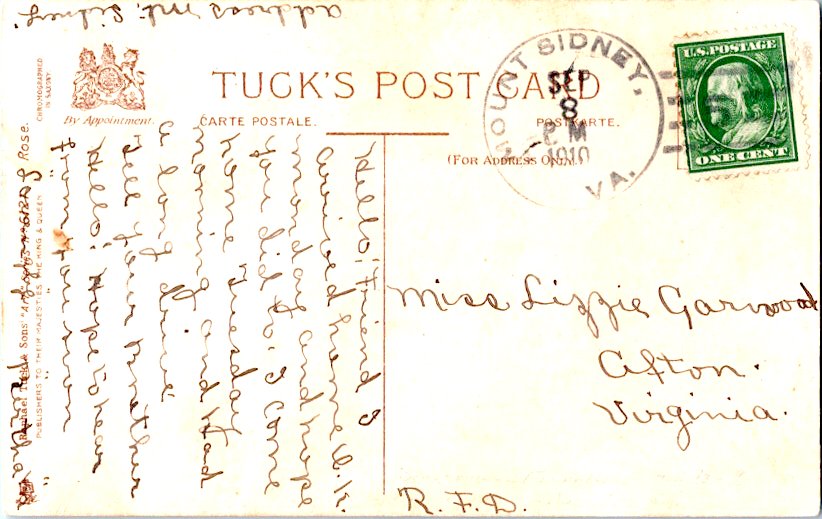 address Mt. Sidney.
TUCK'S POST CARD
By Appointment.
CHROMOGRAPHED
IN SAXONY
CARTE POSTALE.
POSTKARTE.
(FOR ADDRESS ONLY.)
MOUNT SIDNEY,
VA.
SEP
8
P M
1910
U.S. POSTAGE
ONE CENT
Hello! Friend I
arrived home O.K.
monday and hope
you did to. I come
home Tuesday
morning and Had
a long drive
Tell your Brother
Hello! Hope to hear
from you soon
Raphael Tuck & Sons'
PUBLISHERS TO THEIR MAJESTIES THE KING & QUEEN
Rose.
Miss Lizzie Garwood
Afton.
Virginia.
R. F. D.